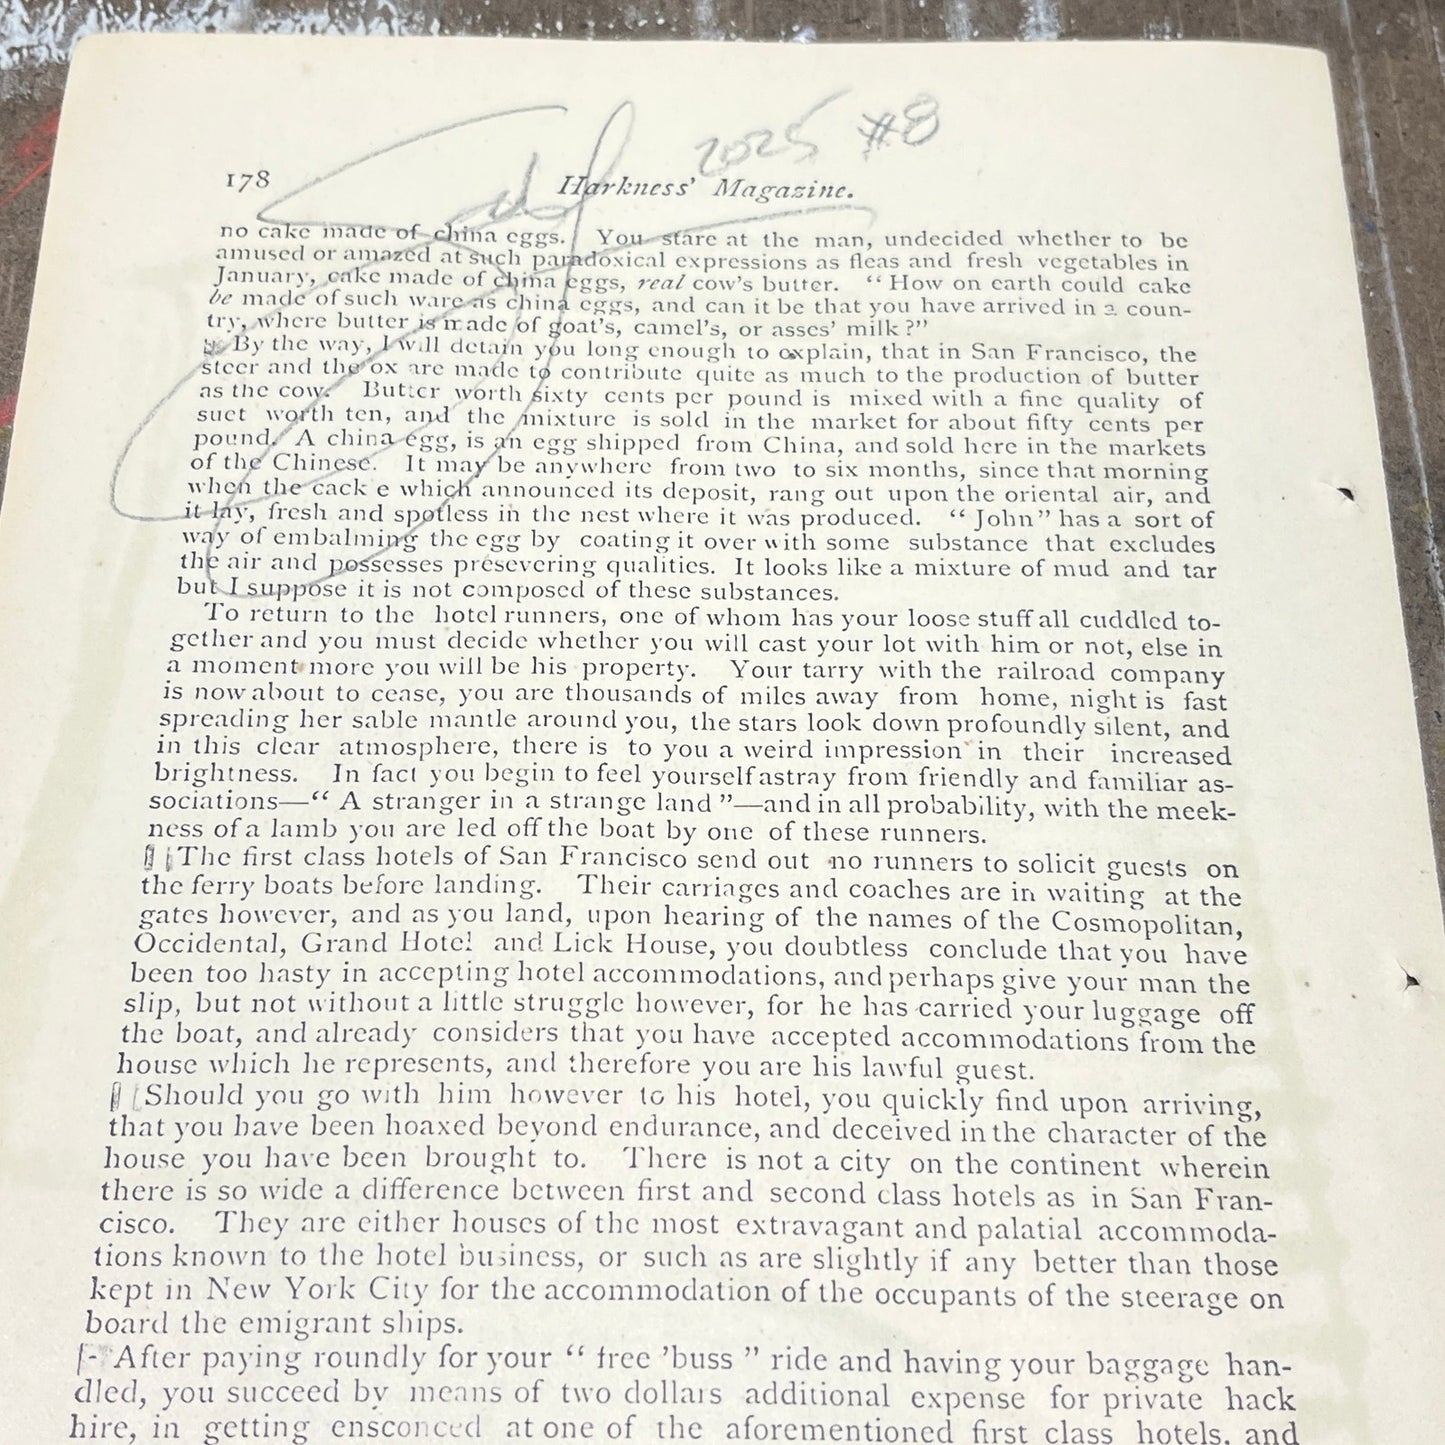 2025 #8
178 Harkness' Magazine.
no cake made of china eggs. You stare at the man, undecided whether to be
amused or amazed at such paradoxical expressions as fleas and fresh vegetables in
January, cake made of china eggs, real cow's butter. “How on earth could cake
be made of such ware as china eggs, and can it be that you have arrived in a coun-
try, where butter is made of goat's, camel's, or asses' milk?”
By the way, I will detain you long enough to explain, that in San Francisco, the
steer and the ox are made to contribute quite as much to the production of butter
as the cow. Butter worth sixty cents per pound is mixed with a fine quality of
suet worth ten, and the mixture is sold in the market for about fifty cents per
pound. A china egg, is an egg shipped from China, and sold here in the markets
of the Chinese. It may be anywhere from two to six months, since that morning
when the cack e which announced its deposit, rang out upon the oriental air, and
it lay, fresh and spotless in the nest where it was produced. “John” has a sort of
way of embalming the egg by coating it over with some substance that excludes
the air and possesses presevering qualities. It looks like a mixture of mud and tar
but I suppose it is not composed of these substances.
To return to the hotel runners, one of whom has your loose stuff all cuddled to-
gether and you must decide whether you will cast your lot with him or not, else in
a moment more you will be his property. Your tarry with the railroad company
is now about to cease, you are thousands of miles away from home, night is fast
spreading her sable mantle around you, the stars look down profoundly silent, and
in this clear atmosphere, there is to you a weird impression in their increased
brightness. In fact you begin to feel yourself astray from friendly and familiar as-
sociations—“A stranger in a strange land”—and in all probability, with the meek-
ness of a lamb you are led off the boat by one of these runners.
The first class hotels of San Francisco send out no runners to solicit guests on
the ferry boats before landing. Their carriages and coaches are in waiting at the
gates however, and as you land, upon hearing of the names of the Cosmopolitan,
Occidental, Grand Hotel and Lick House, you doubtless conclude that you have
been too hasty in accepting hotel accommodations, and perhaps give your man the
slip, but not without a little struggle however, for he has carried your luggage off
the boat, and already considers that you have accepted accommodations from the
house which he represents, and therefore you are his lawful guest.
Should you go with him however to his hotel, you quickly find upon arriving,
that you have been hoaxed beyond endurance, and deceived in the character of the
house you have been brought to. There is not a city on the continent wherein
there is so wide a difference between first and second class hotels as in San Fran-
cisco. They are either houses of the most extravagant and palatial accommoda-
tions known to the hotel business, or such as are slightly if any better than those
kept in New York City for the accommodation of the occupants of the steerage on
board the emigrant ships.
After paying roundly for your “free 'buss” ride and having your baggage han-
dled, you succeed by means of two dollars additional expense for private hack
hire, in getting ensconced at one of the aforementioned first class hotels, and